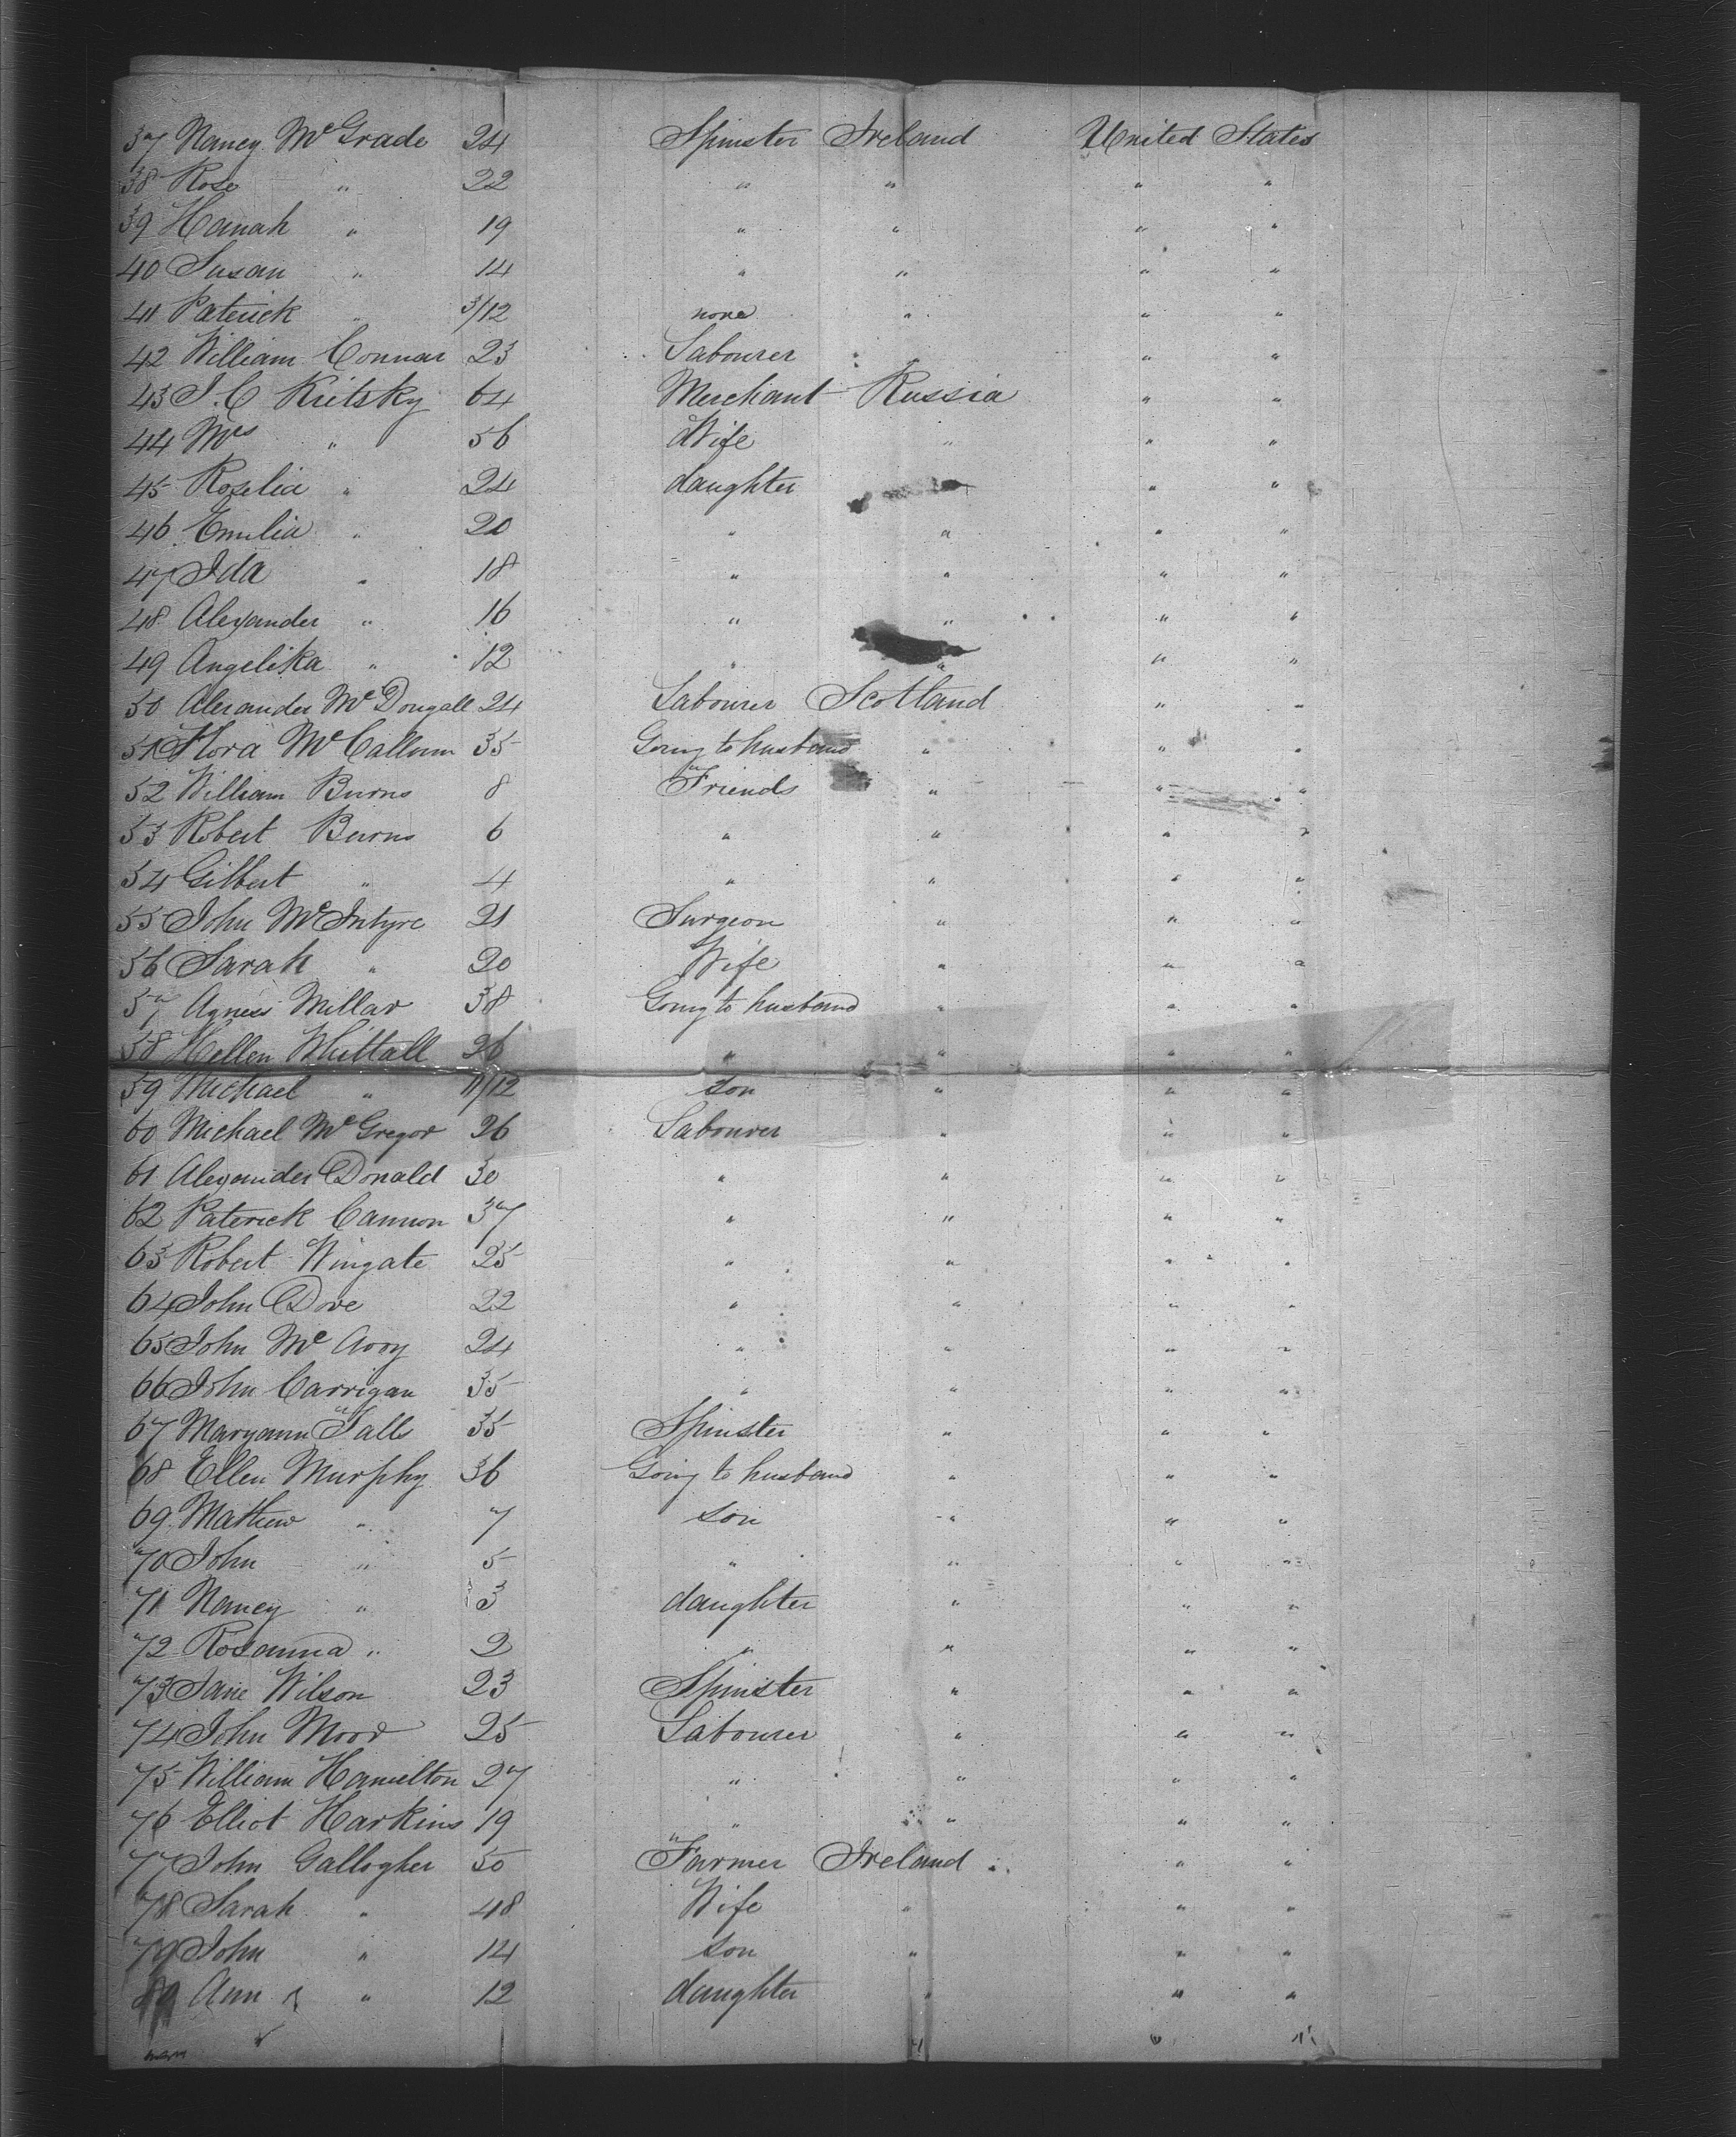 37 Nancy McGrade 24 Spinster Ireland United States
38 Rose " 22 " " " "
39 Hanah " 19 " " " "
40 Susan " 14 " " " "
41 Paterick " 3/12 none " " "
42 William Connar 23 Labourer " " "
43 J. C Kritsky 64 Merchant Russia " "
44 Mrs " 56 Wife " " "
45 Roselia " 24 daughter " "
46 Emilia " 20 " " " "
47 Ida " 18 " " " "
48 Alexander " 16 " " " "
49 Angelika " 12 " " " "
50 Alexander McDougall 24 Labourer Scotland " "
51 Flora McCallum 35 Going to husband " " "
52 William Burns 8 Friends " " "
53 Robert Burns 6 " " " "
54 Gilbert " 4 " " " "
55 John McIntyre 21 Surgeon " " "
56 Sarah " 20 Wife " " "
57 Agness Millar 38 Going to husband " " "
58 Hellen Whittall 26 " " " "
59 Michael " 11/12 son " " "
60 Michael McGregor 26 Labourer " " "
61 Alexander Donald 30 " " " "
62 Paterick Cannon 37 " " " "
63 Robert Wingate 25 " " " "
64 John Dove 22 " " " "
65 John McAvoy 24 " " " "
66 John Carrigan 35 " " " "
67 Maryann Falls 35 Spinster " " "
68 Ellen Murphy 36 Going to husband " " "
69 Mathew " 7 son " " "
70 John " 5 " " " "
71 Nancy " 3 daughter " " "
72 Rosanna " 2 " " " "
73 Jane Wilson 23 Spinster " " "
74 John Moor 25 Labourer " " "
75 William Hamelton 27 " " " "
76 Elliot Harkins 19 " " " "
77 John Gallogher 50 Farmer Ireland " "
78 Sarah " 48 Wife " " "
79 John " 14 son " " "
80 Ann " 12 daughter " " "
" " "